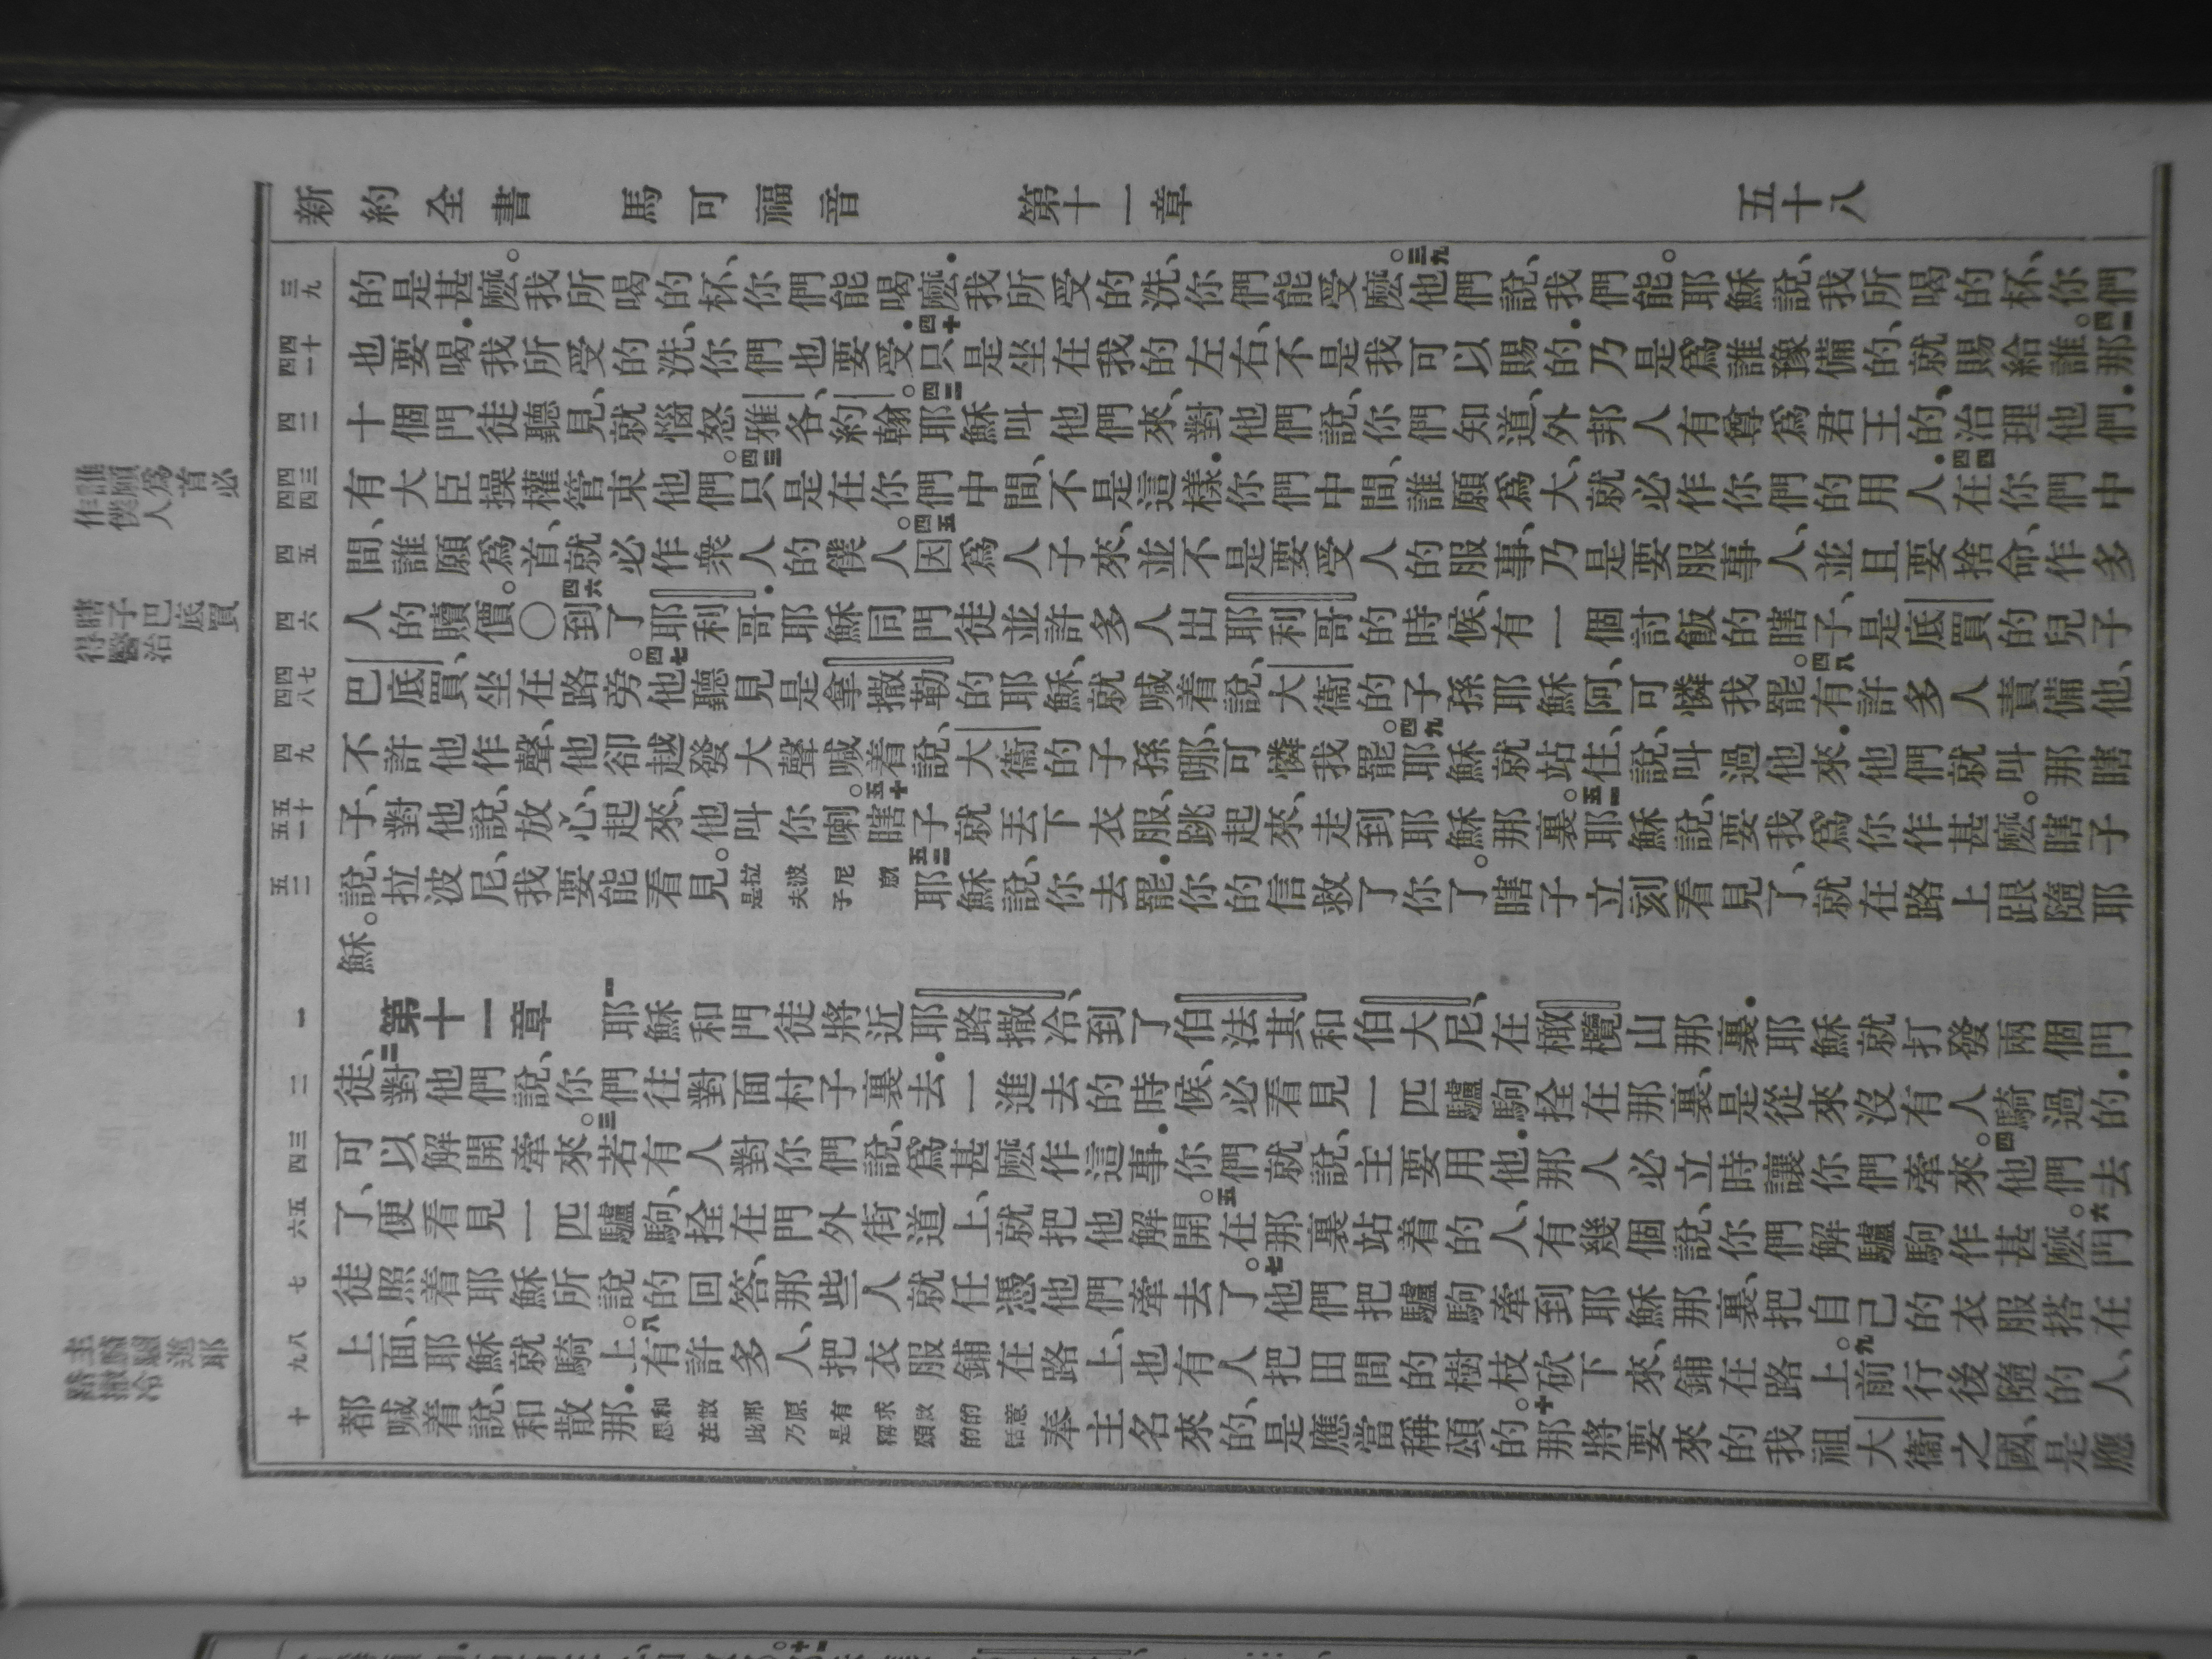 新約全書 馬可福音 第十一章 五十八
三九 的是甚麼。我所喝的杯、你們能喝麼．我所受的洗、你們能受麼。三九他們說、我們能。耶穌說、我所喝的杯、你們
四十 四一 也要喝．我所受的洗、你們也要受．四十只是坐在我的左右、不是我可以賜的．乃是爲誰豫備的、就賜給誰。四一那
四二 十個門徒聽見、就惱怒雅各、約翰。四二耶穌叫他們來、對他們說、你們知道、外邦人有尊爲君王的、治理他們．
四三 四四 有大臣操權管束他們。四三只是在你們中間、不是這樣．你們中間、誰願爲大、就必作你們的用人．四四在你們中
誰願爲首必
作僕人
四五 間、誰願爲首、就必作衆人的僕人。四五因爲人子來、並不是要受人的服事、乃是要服事人、並且要捨命、作多
四六 人的贖價。〇四六到了耶利哥．耶穌同門徒並許多人出耶利哥的時候、有一個討飯的瞎子、是底買的兒子
瞎子巴底買
得醫治
四七 四八 巴底買、坐在路旁。四七他聽見是拿撒勒的耶穌、就喊着說、大衞的子孫耶穌阿、可憐我罷。四八有許多人責備他、
四九 不許他作聲、他卻越發大聲喊着說、大衞的子孫哪、可憐我罷。四九耶穌就站住、說、叫過他來．他們就叫那瞎
五十 五一 子、對他說、放心、起來、他叫你喇。五十瞎子就丟下衣服、跳起來、走到耶穌那裏。五一耶穌說、要我爲你作甚麼。瞎子
五二 說、拉波尼、我要能看見。拉波尼就是夫子 五二耶穌說、你去罷．你的信救了你了。瞎子立刻看見了、就在路上跟隨耶
穌。
一 第十一章 一耶穌和門徒將近耶路撒冷、到了伯法其和伯大尼、在橄欖山那裏．耶穌就打發兩個門
二 徒、二對他們說、你們往對面村子裏去．一進去的時候、必看見一匹驢駒拴在那裏、是從來沒有人騎過的．
三 四 可以解開牽來。三若有人對你們說、爲甚麼作這事．你們就說、主要用他．那人必立時讓你們牽來。四他們去
五 六 了、便看見一匹驢駒、拴在門外街道上、就把他解開。五在那裏站着的人、有幾個說、你們解驢駒作甚麼。六門
七 徒照着耶穌所說的回答、那些人就任憑他們牽去了。七他們把驢駒牽到耶穌那裏、把自己的衣服搭在
八 九 上面、耶穌就騎上。八有許多人、把衣服鋪在路上、也有人把田間的樹枝砍下來、鋪在路上。九前行後隨的人、
主騎驢進耶
路撒冷
十 都喊着說、和散那．和散那原有求救的意思在此乃是稱頌的話 奉主名來的、是應當稱頌的。十那將要來的我祖大衞之國、是應